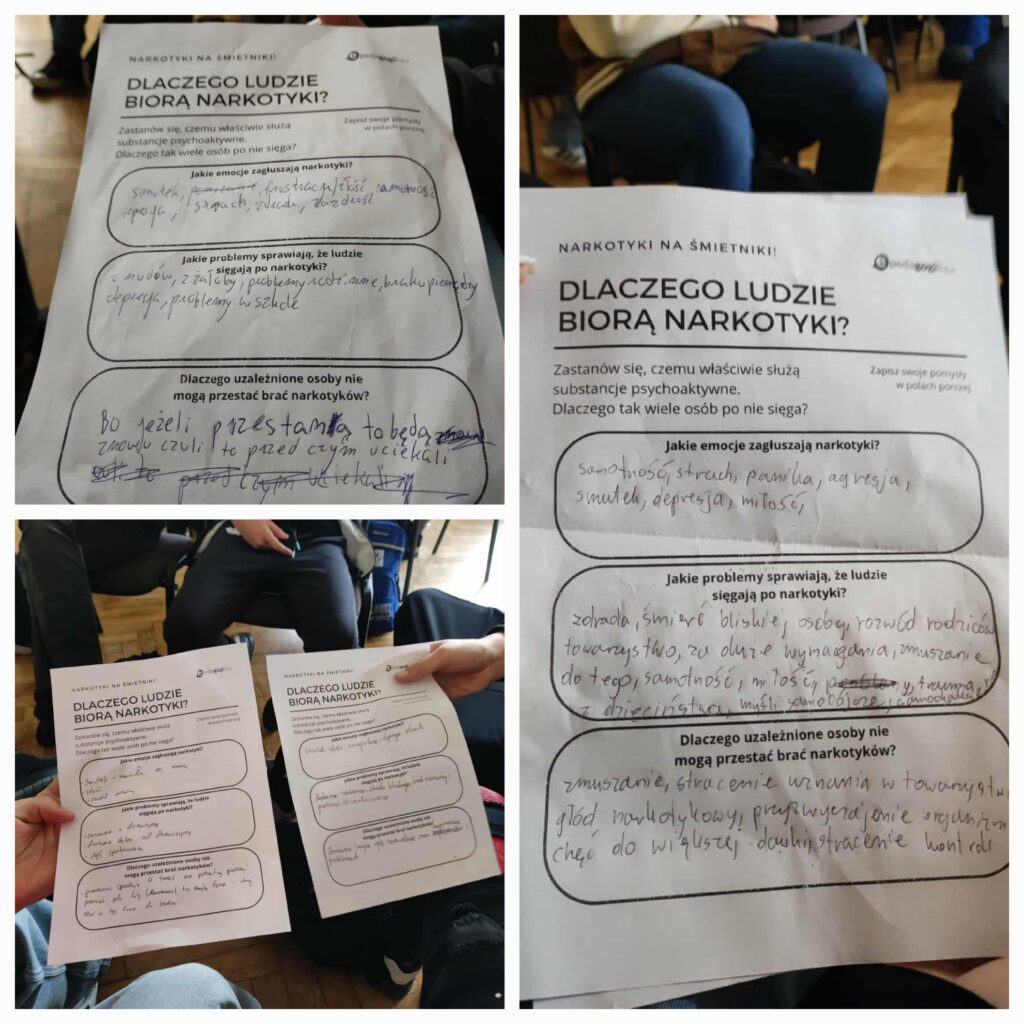 NARKOTYKI NA ŚMIETNIKI!
pedagogiczna
DLACZEGO LUDZIE
BIORĄ NARKOTYKI?
Zastanów się, czemu właściwie służą
substancje psychoaktywne.
Dlaczego tak wiele osób po nie sięga?
Zapisz swoje pomysły
w polach poniżej
Jakie emocje zagłuszają narkotyki?
smutek, frustracja/złość, samotność
depresja, strach, zdrada, zazdrość
Jakie problemy sprawiają, że ludzie
sięgają po narkotyki?
z nudów, z żałoby, problemy rodzinne, braku pieniędzy
depresja, problemy w szkole
Dlaczego uzależnione osoby nie
mogą przestać brać narkotyków?
Bo jeżeli przestaną to będą
znowu czuli to przed czym uciekali
przed czym uciekali
NARKOTYKI NA ŚMIETNIKI!
DLACZEGO LUDZIE
BIORĄ NARKOTYKI?
Zastanów się, czemu właściwie służą
substancje psychoaktywne.
Dlaczego tak wiele osób po nie sięga?
Zapisz swoje pomysły
w polach poniżej
Jakie emocje zagłuszają narkotyki?
samotność, strach, panika, agresja,
smutek, depresja, miłość,
Jakie problemy sprawiają, że ludzie
sięgają po narkotyki?
zdrada, śmierć bliskiej osoby, rozwód rodziców
towarzystwo, za duże wymagania, zmuszanie
do tego, samotność, miłość, trauma
z dzieciństwa, myśli samobójcze,
Dlaczego uzależnione osoby nie
mogą przestać brać narkotyków?
zmuszanie, stracenie uznania w towarzystw
głód narkotykowy, przyzwyczajenie organizm
chęć do większej dawki, stracenie kontroli
NARKOTYKI NA ŚMIETNIKI!
DLACZEGO LUDZIE
BIORĄ NARKOTYKI?
Zastanów się, czemu właściwie służą
substancje psychoaktywne.
Dlaczego tak wiele osób po nie sięga?
Zapisz swoje pomysły
w polach poniżej
Jakie emocje zagłuszają narkotyki?
- złość
Jakie problemy sprawiają, że ludzie
sięgają po narkotyki?
Dlaczego uzależnione osoby nie
mogą przestać brać narkotyków?
NARKOTYKI NA ŚMIETNIKI!
DLACZEGO LUDZIE
BIORĄ NARKOTYKI?
Zastanów się, czemu właściwie służą
substancje psychoaktywne.
Dlaczego tak wiele osób po nie sięga?
Jakie emocje zagłuszają narkotyki?
Jakie problemy sprawiają, że ludzie
sięgają po narkotyki?
Dlaczego uzależnione osoby nie
mogą przestać brać narkotyków?
problemach